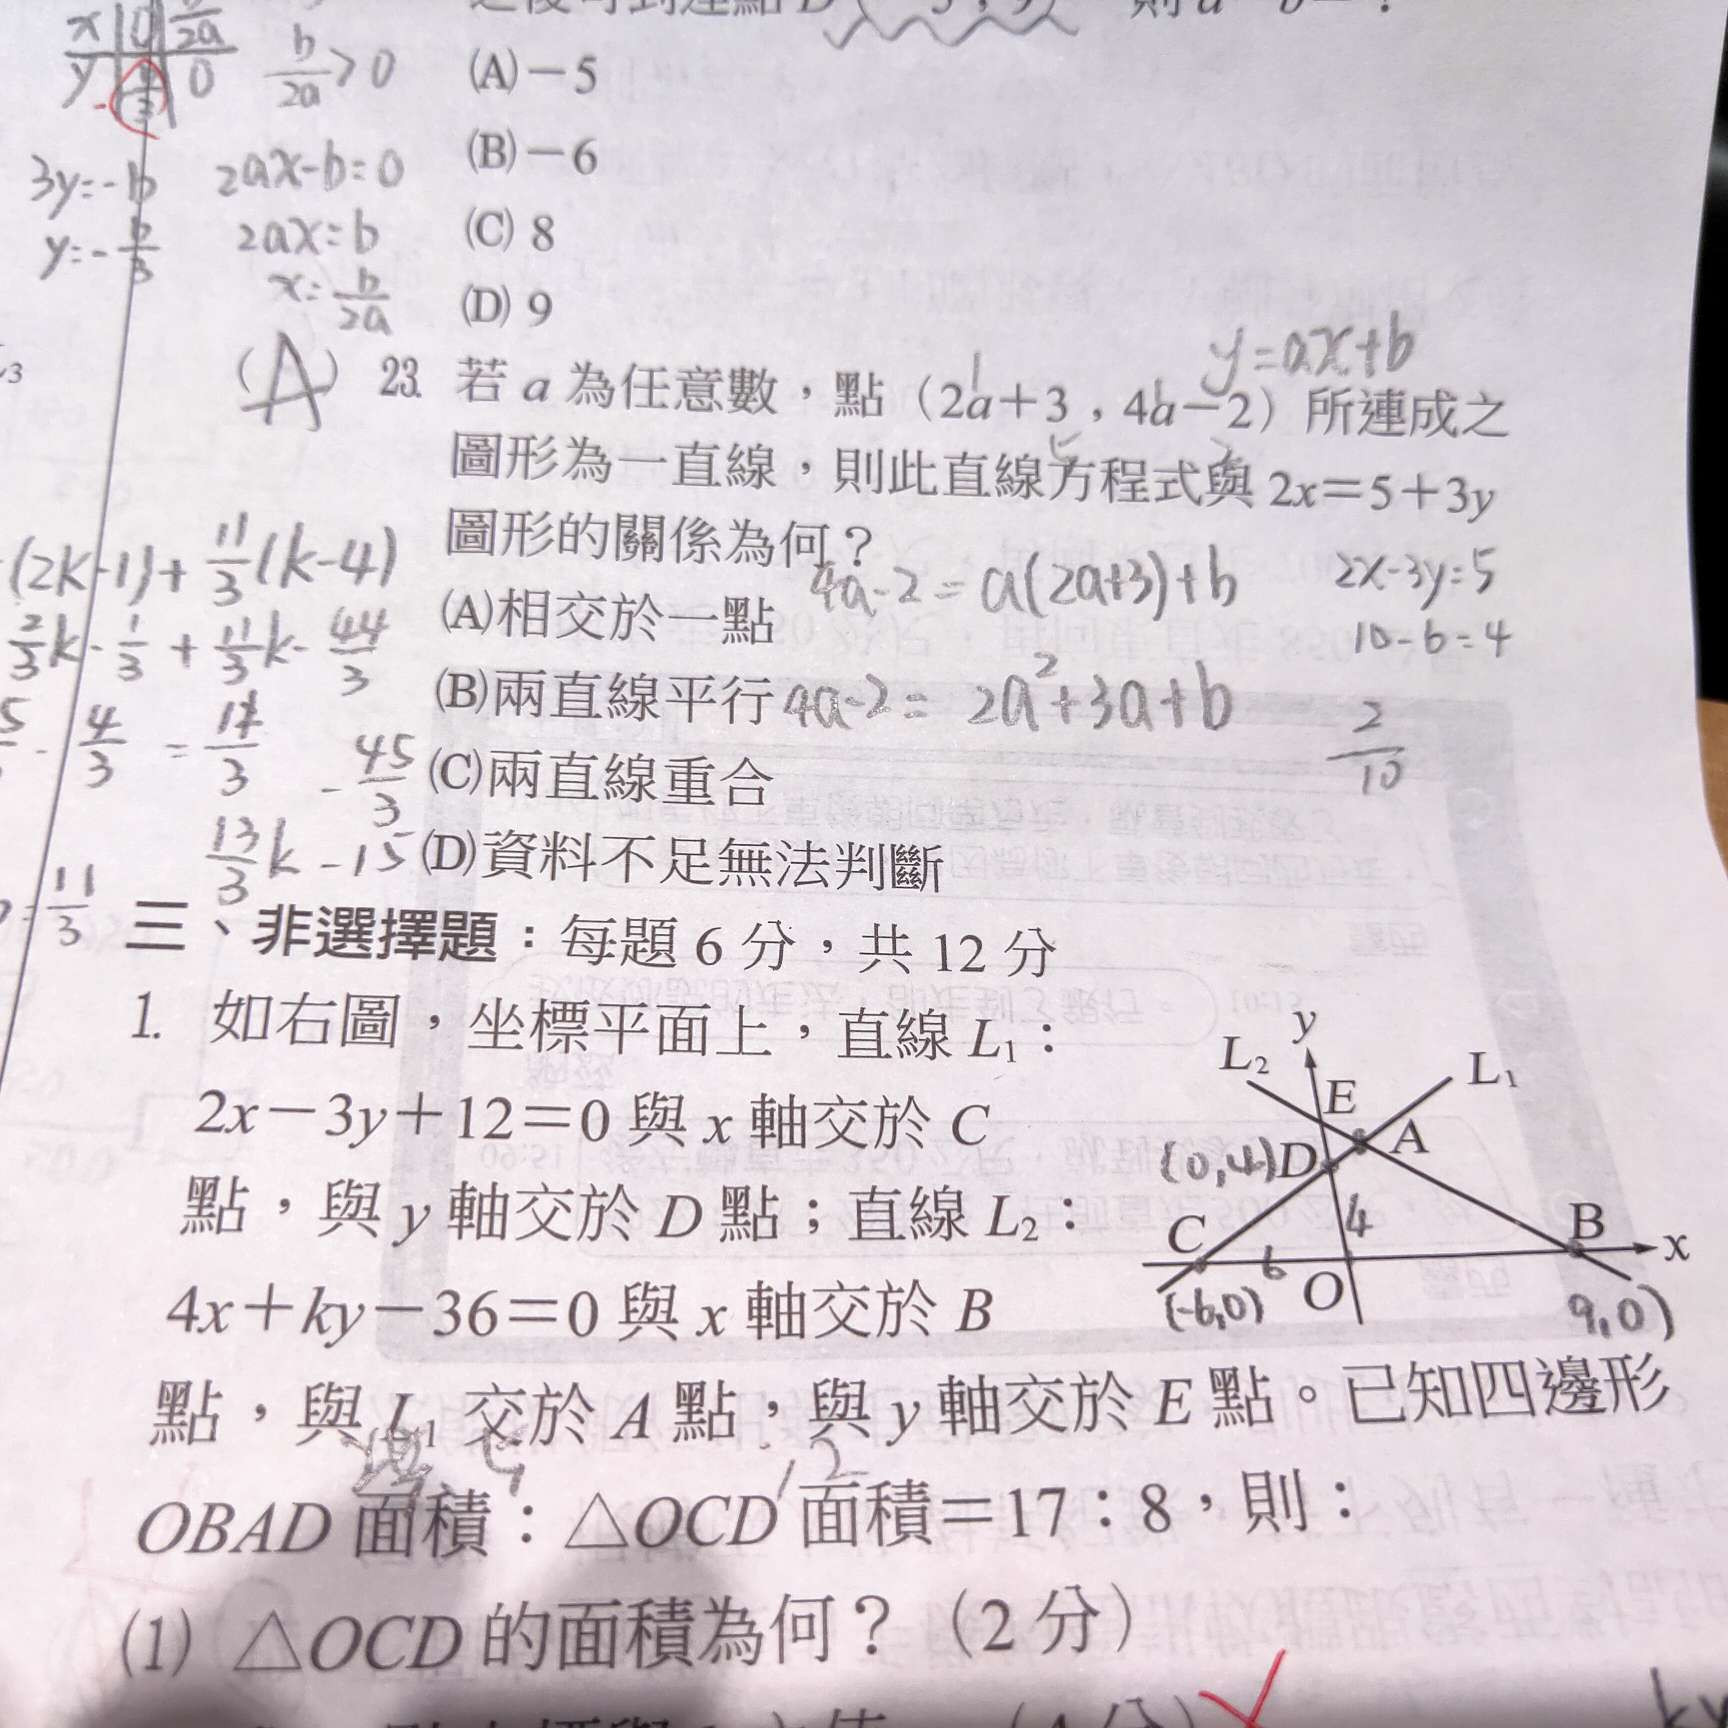 (A)－5
(B)－6
(C) 8
(D) 9
x 0 b/2a
y 0
b/2a > 0
3y=-b
y=-b/3
2ax-b=0
2ax=b
x=b/2a
(A) 23. 若 a 為任意數，點（2a＋3，4a－2）所連成之
圖形為一直線，則此直線方程式與 2x＝5＋3y
圖形的關係為何？
(A)相交於一點
(B)兩直線平行
(C)兩直線重合
(D)資料不足無法判斷
y=ax+b
4a-2=a(2a+3)+b
4a-2=2a²+3a+b
2x-3y=5
10-6=4
2/10
(2k-1)+11/3(k-4)
2/3k-1/3+11/3k-44/3
-45/3
13/3k-15
11/3
三、非選擇題：每題 6 分，共 12 分
1. 如右圖，坐標平面上，直線 L₁：
2x－3y＋12＝0 與 x 軸交於 C
點，與 y 軸交於 D 點；直線 L₂：
4x＋ky－36＝0 與 x 軸交於 B
點，與 L₁ 交於 A 點，與 y 軸交於 E 點。已知四邊形
OBAD 面積：△OCD 面積＝17：8，則：
(1) △OCD 的面積為何？（2 分）
y
L₂
L₁
E
A
(0,4) D
4
C
B
x
6
O
(-6,0)
9,0)
12